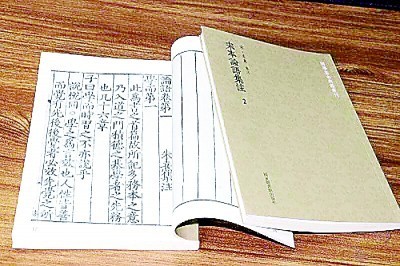 論語卷第一 朱熹集注
學而第一
此爲書之首篇故所記多務本之意
乃入道之門積德之基學者之先務
也凡十六章
子曰學而時習之不亦說乎
說悅同 學之爲言效也人性皆善
而覺有先後後覺者必效先覺之所
宋本論語集注
2